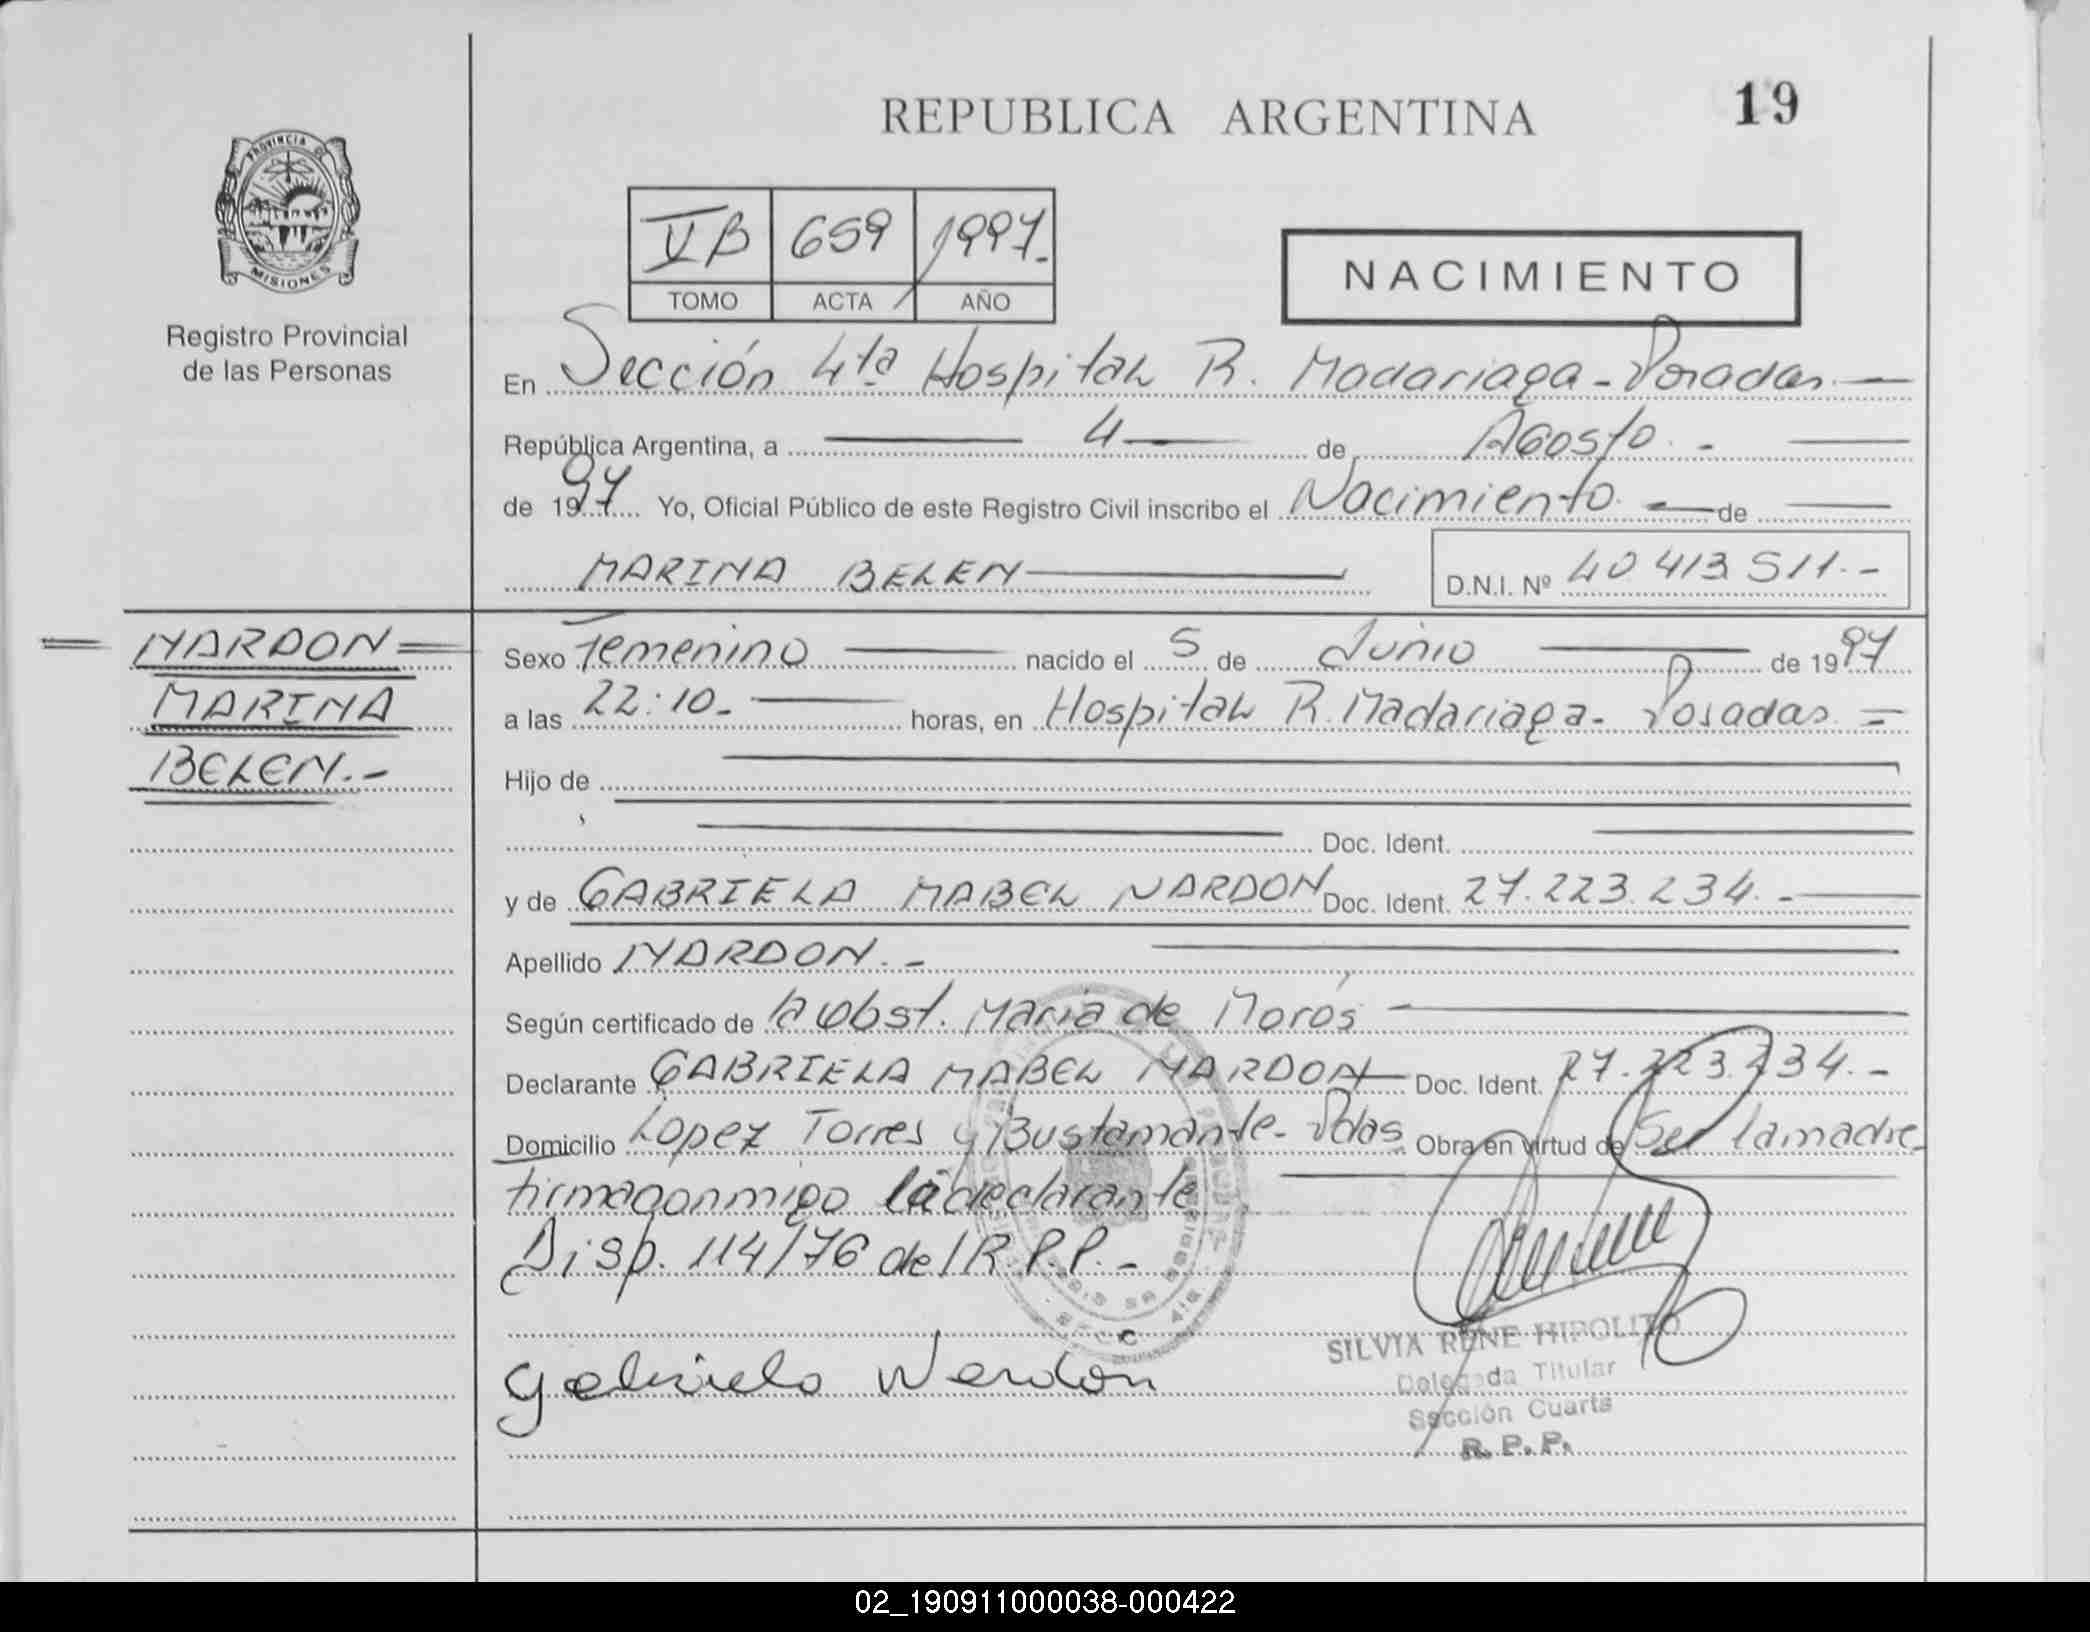 REPUBLICA ARGENTINA
19
PROVINCIA DE
MISIONES
Registro Provincial
de las Personas
VB 659 1997.
TOMO ACTA AÑO
NACIMIENTO
En Sección 4ta Hospital R. Madariaga - Posadas.
República Argentina, a 4 de Agosto. -
de 1997 Yo, Oficial Público de este Registro Civil inscribo el Nacimiento. de
MARINA BELEN
D.N.I. Nº 40 413 511. -
NARDON
MARINA
BELEN. -
Sexo Femenino nacido el 5 de Junio de 1997
a las 22:10. horas, en Hospital R. Madariaga - Posadas. =
Hijo de
Doc. Ident.
y de GABRIELA MABEL NARDON Doc. Ident. 27.223.234. -
Apellido NARDON. -
Según certificado de la obst. Maria de Morós
Declarante GABRIELA MABEL NARDON Doc. Ident. 27.223.234. -
Domicilio Lopez Torres y Bustamante - Pdas. Obra en virtud de Ser la madre
firma conmigo la declarante
Disp. 114/76 del R.P.P. -
Gabriela Nardon
SILVIA RENE HIPOLITO
Delegada Titular
Sección Cuarta
R. P. P.
02_190911000038-000422